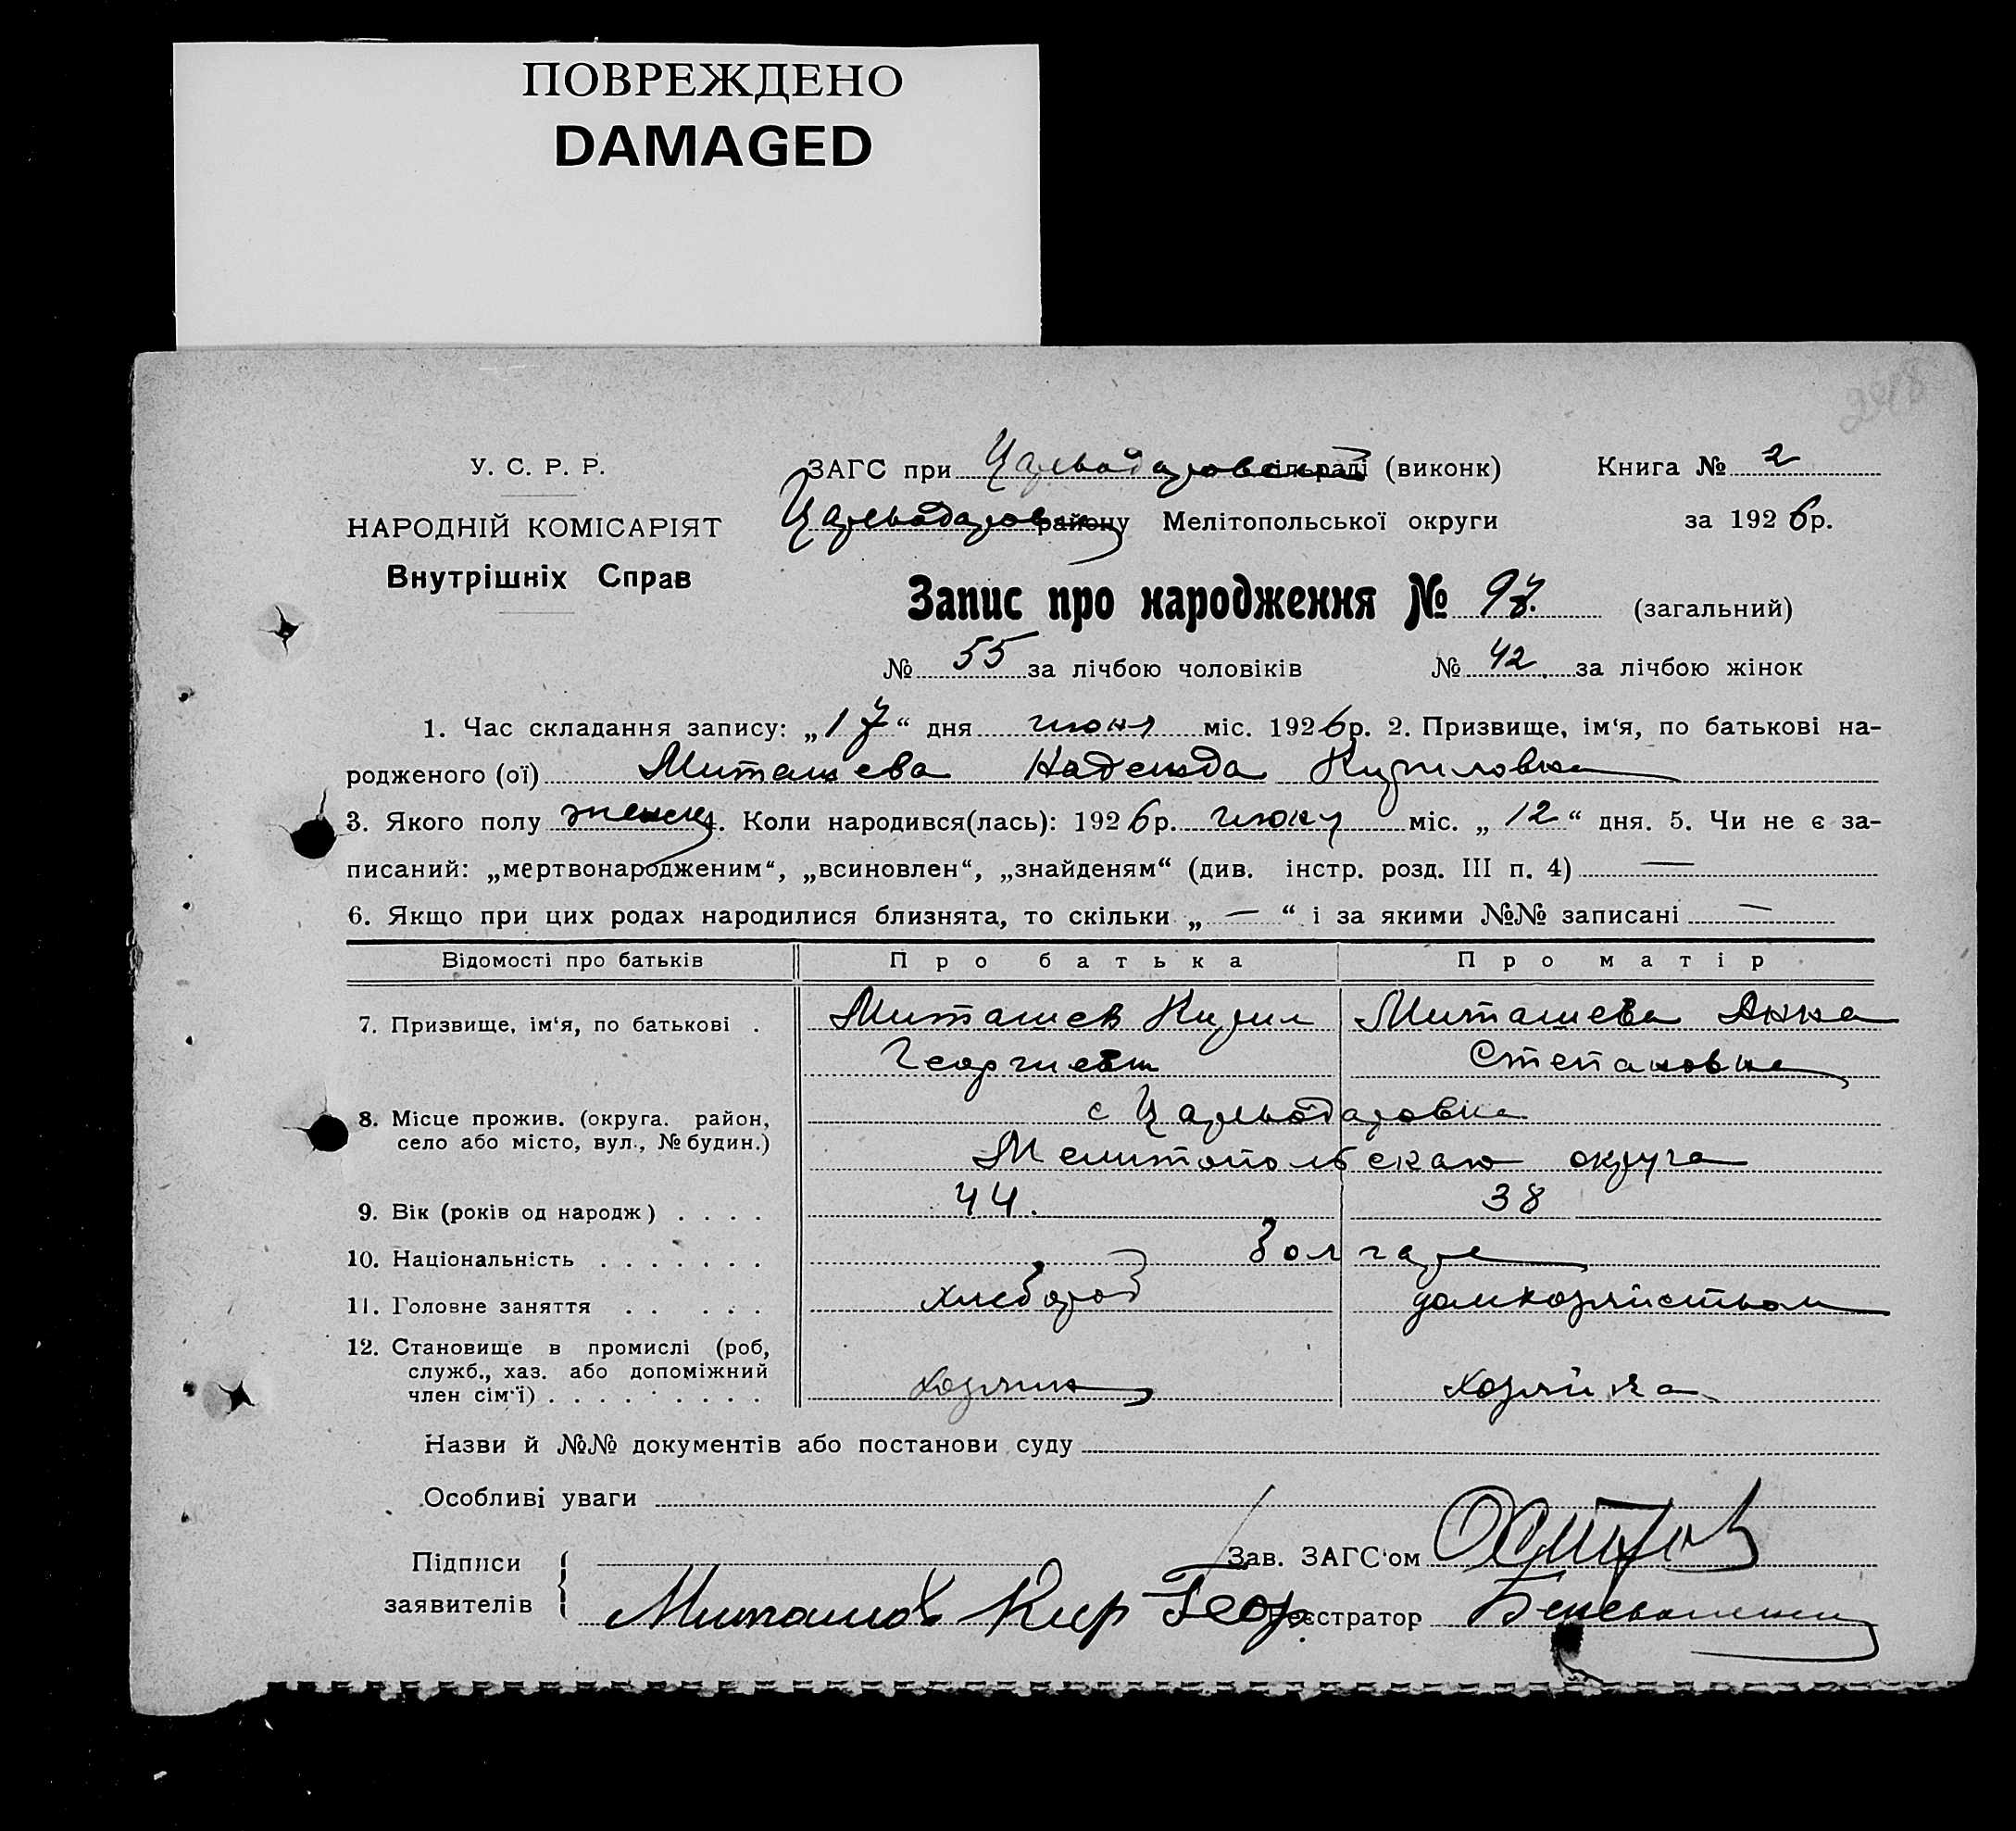 ПОВРЕЖДЕНО
DAMAGED
У. С. Р. Р.
НАРОДНІЙ КОМІСАРІЯТ
Внутрішніх Справ
ЗАГС при Царьодаровской сільраді (виконк) Книга № 2
Царьодаровка району Мелітопольської округи за 1926р.
Запис про народження № 97. (загальний)
№ 55 за лічбою чоловіків № 42 за лічбою жінок
1. Час складання запису: „17“ дня июня міс. 1926р. 2. Призвище, ім‘я, по батькові на-
родженого (ої) Миташева Надежда Кириловна
3. Якого полу женск 4. Коли народився(лась): 1926р. июня міс. „12“ дня. 5. Чи не є за-
писаний: „мертвонародженим“, „всиновлен“, „знайденям“ (див. інстр. розд. III п. 4) —
6. Якщо при цих родах народилися близнята, то скільки „—“ і за якими №№ записані —
Відомості про батьків Про батька Про матір
7. Призвище, ім‘я, по батькові . Миташев Кирил Миташева Анна
Георгиевич Степановна
8. Місце прожив. (округа. район, село або місто, вул., № будин.) с Царьодаровка
Мелитопольскаго округа
9. Вік (років од народж) . . . . 44. 38
10. Національність . . . . . . . болгаре
11. Головне заняття . . . . . хлебороб домхозяйством
12. Становище в промислі (роб,
служб., хаз. або допоміжний
член сім‘ї) . . . . . . . . . хозяин хозяйка
Назви й №№ документів або постанови суду
Особливі уваги
Підписи Зав. ЗАГС‘ом
заявителів Миташов Кир Геор. Реєстратор